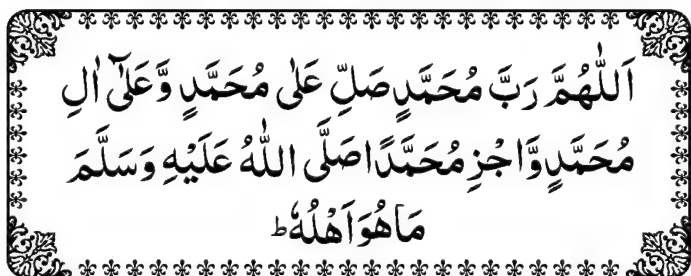 اَللّٰهُمَّ رَبَّ مُحَمَّدٍ صَلِّ عَلٰى مُحَمَّدٍ وَّعَلٰٓى اٰلِ
مُحَمَّدٍ وَّاجْزِ مُحَمَّدًا صَلَّى اللّٰهُ عَلَيْهِ وَسَلَّمَ
مَا هُوَ اَهْلُهٗ ط